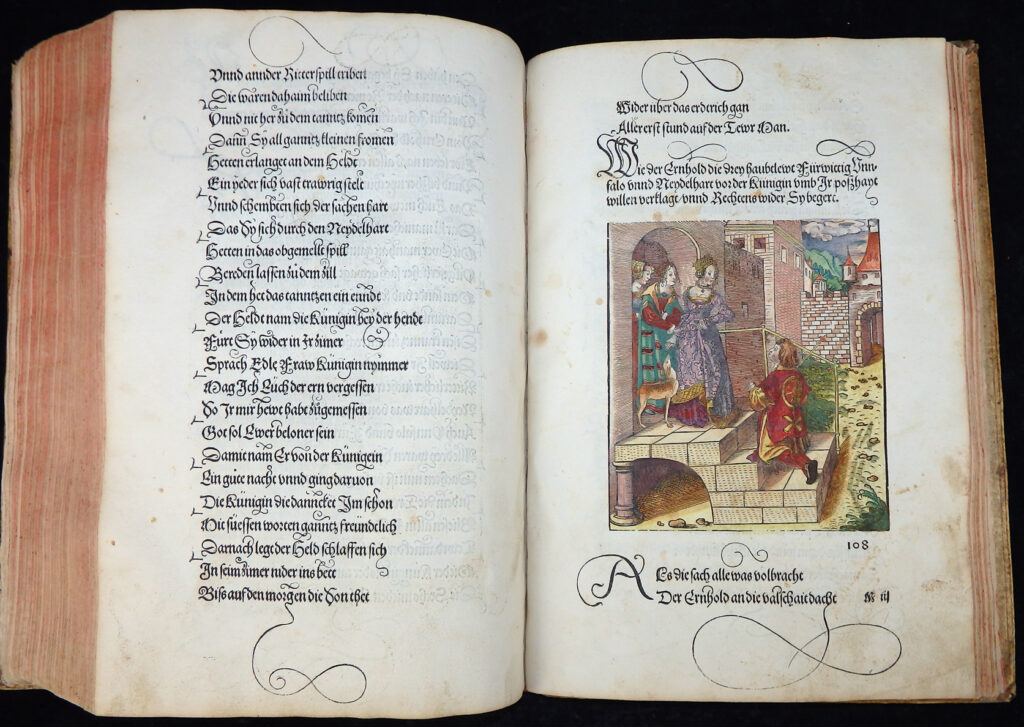 Vnnd annder Ritterspill triben
Die wären dahaim beliben
Vnnd nit her zů dem tanntz komen
Dann Sy all ganntz kleinen fromen
Hetten erlanget an dem Helde
Ein yeder sich vast trawrig stelt
Vnnd schembten sich der sachen hart
Das Sy sich durch den Neydelhart
Hetten in das obgemelt spill
Bereden lassen zů dem zill
In dem het das tanntzen ein ennde
Der Heldt nam die Künigin bey der hende
Fürt Sy wider in Ir zimer
Sprach Edle Fraw Künigin nymmer
Mag Ich Euch der ern vergessen
So Ir mir hewt habt zůgemessen
Got sol Ewer beloner sein
Damit nam Er von der Künigein
Ein gůte nacht vnnd ging daruon
Die Künigin die danncket Im schon
Mit süessen worten ganntz freündtlich
Darnach legt der Held schlaffen sich
In seim zimer nider ins bett
Biss auf den morgen die Son thet
Wider über das erdterich gan
Aller erst stund auf der Tewr Man.
Wie der Ernhold die drey haubtlewt Fürwittig Vnn-
falo vnnd Neydelhart vor der Künigin vmb Ir posßhayt
willen verklagt vnnd Rechtens wider Sy begert.
108
Als die sach alle was volbracht
Der Ernhold an die valschait dacht
iij